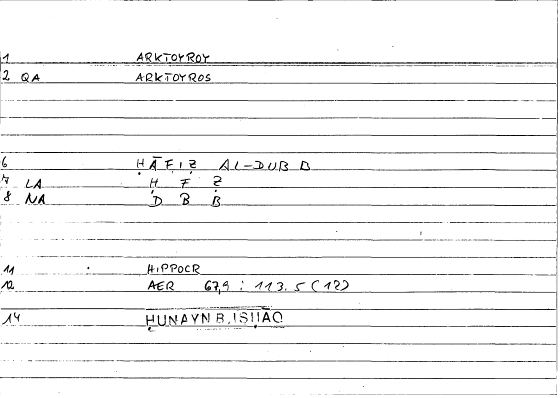 1 ARKTOYROY
2 QA ARKTOYROS
6 ḤĀFIẒ AL-DUBB
7 LA Ḥ F Ẓ
8 NA D B B
11 HIPPOCR
12 AER 67,9 : 113.5 (12)
14 ḤUNAYN B. ISḤĀQ